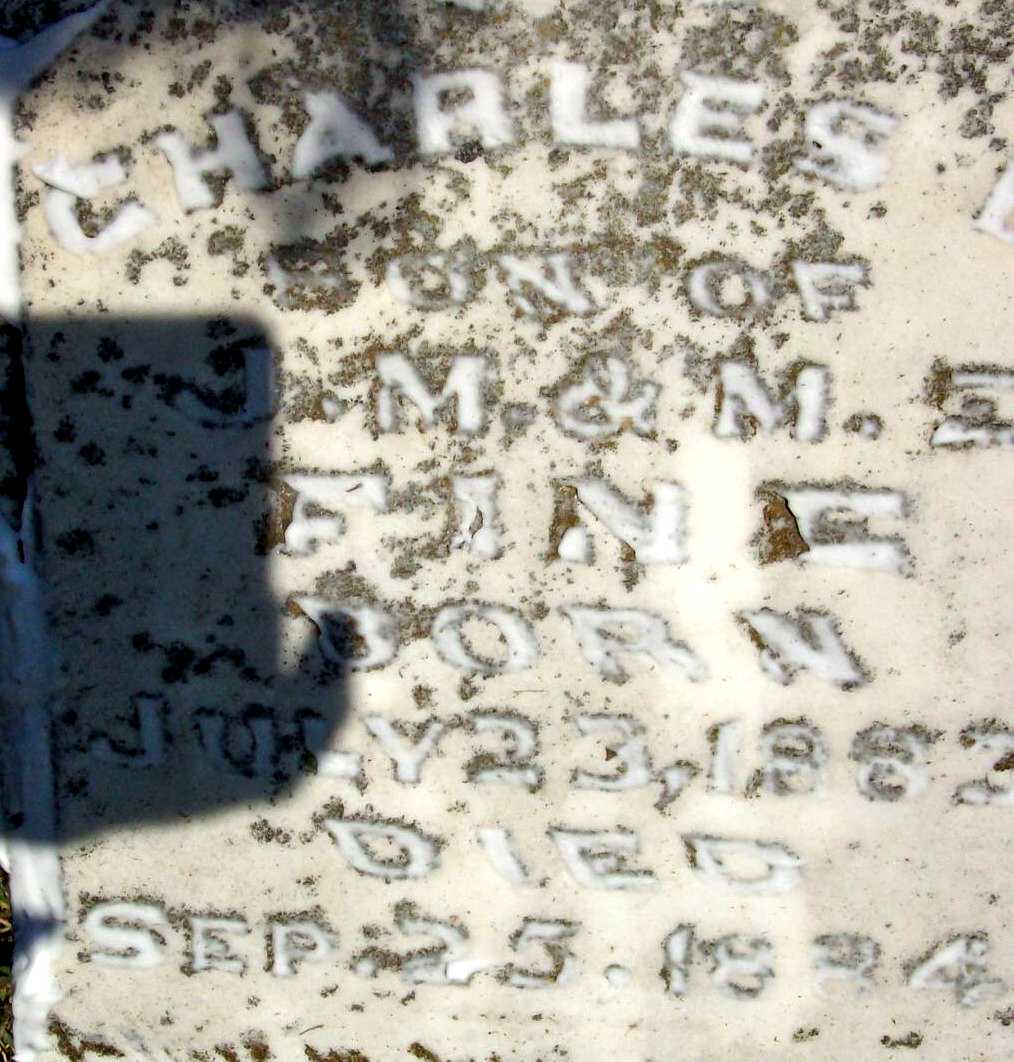 CHARLES
SON OF
J. M. & M. E
FINE
BORN
JULY 23, 1883
DIED
SEP. 25. 1884